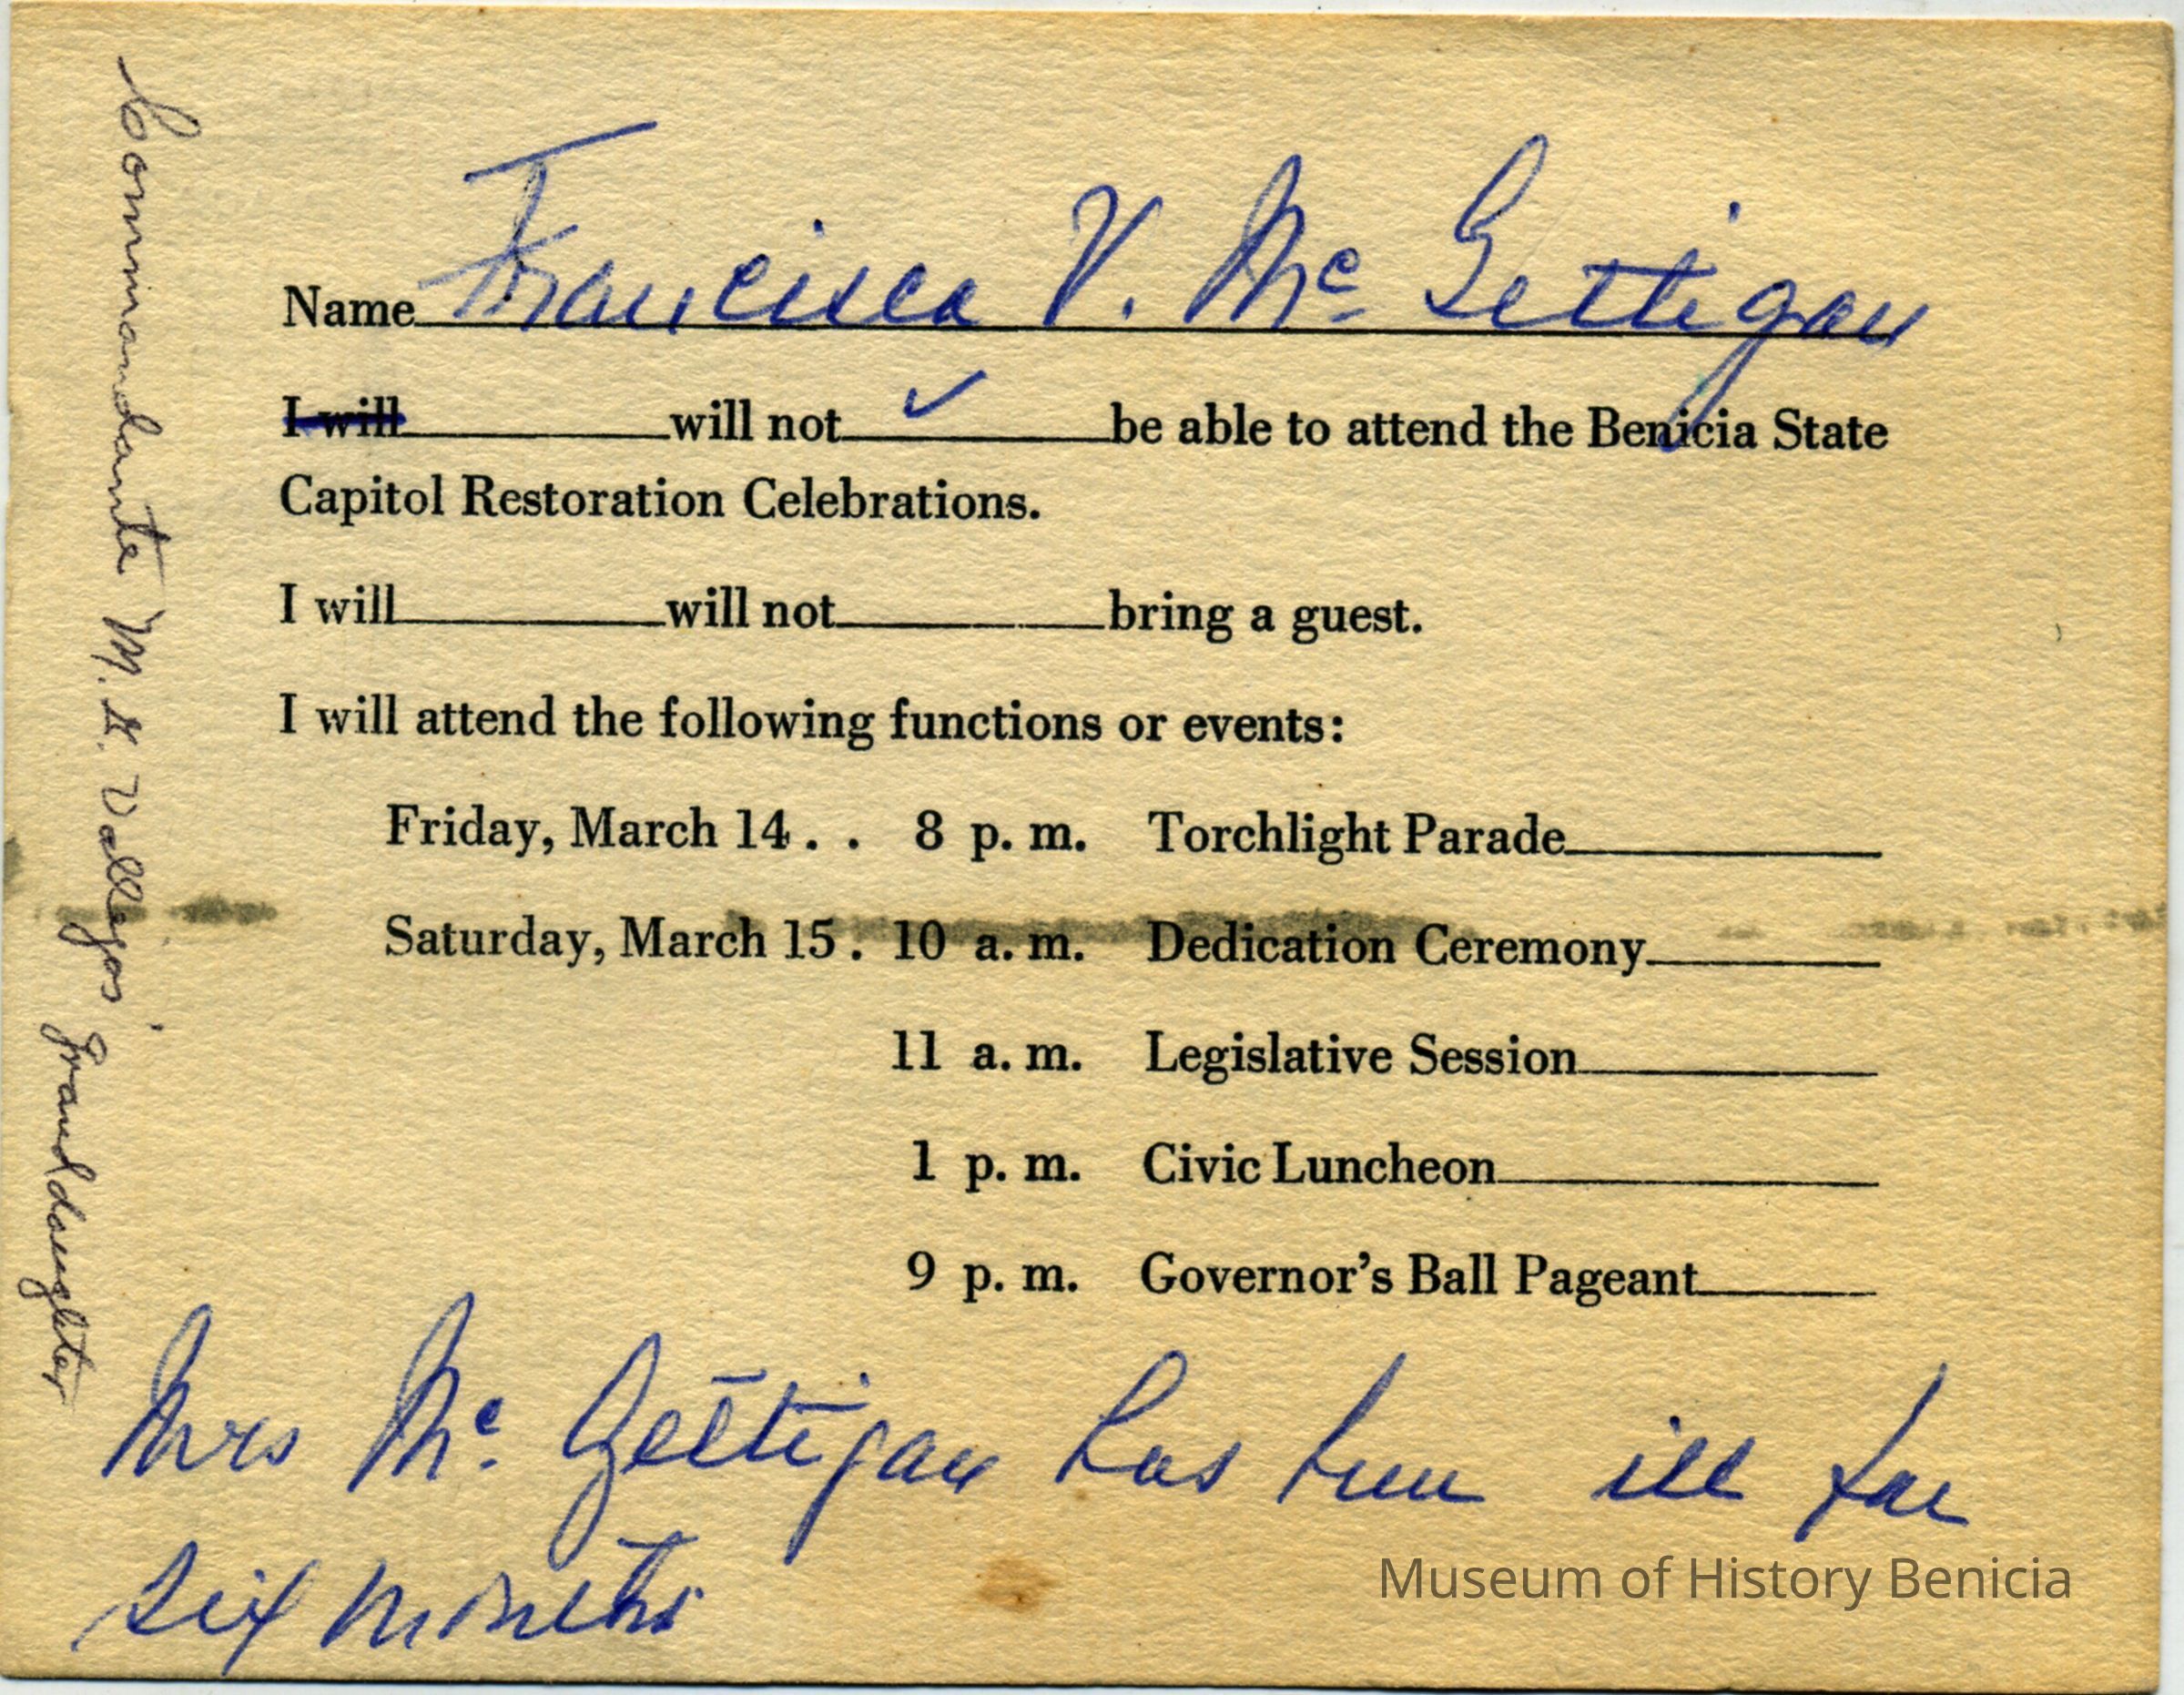 Commandante M. G. Vallejos' granddaughter
Name Francisca V. Mc Gettigan
I will will not ✓ be able to attend the Benicia State
Capitol Restoration Celebrations.
I will will not bring a guest.
I will attend the following functions or events:
Friday, March 14 . . 8 p. m. Torchlight Parade
Saturday, March 15 . 10 a. m. Dedication Ceremony
11 a. m. Legislative Session
1 p. m. Civic Luncheon
9 p. m. Governor's Ball Pageant
Mrs Mc Gettigan has been ill for
six months
Museum of History Benicia